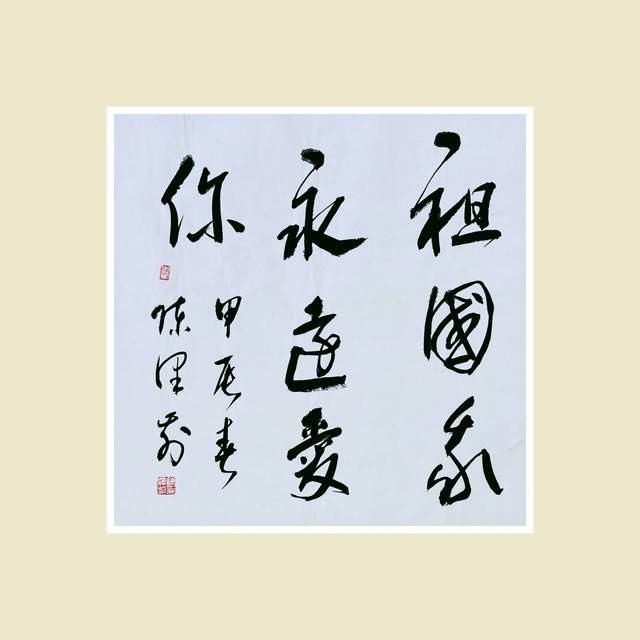 祖國我
永遠愛
你
甲辰春
陳澤莉